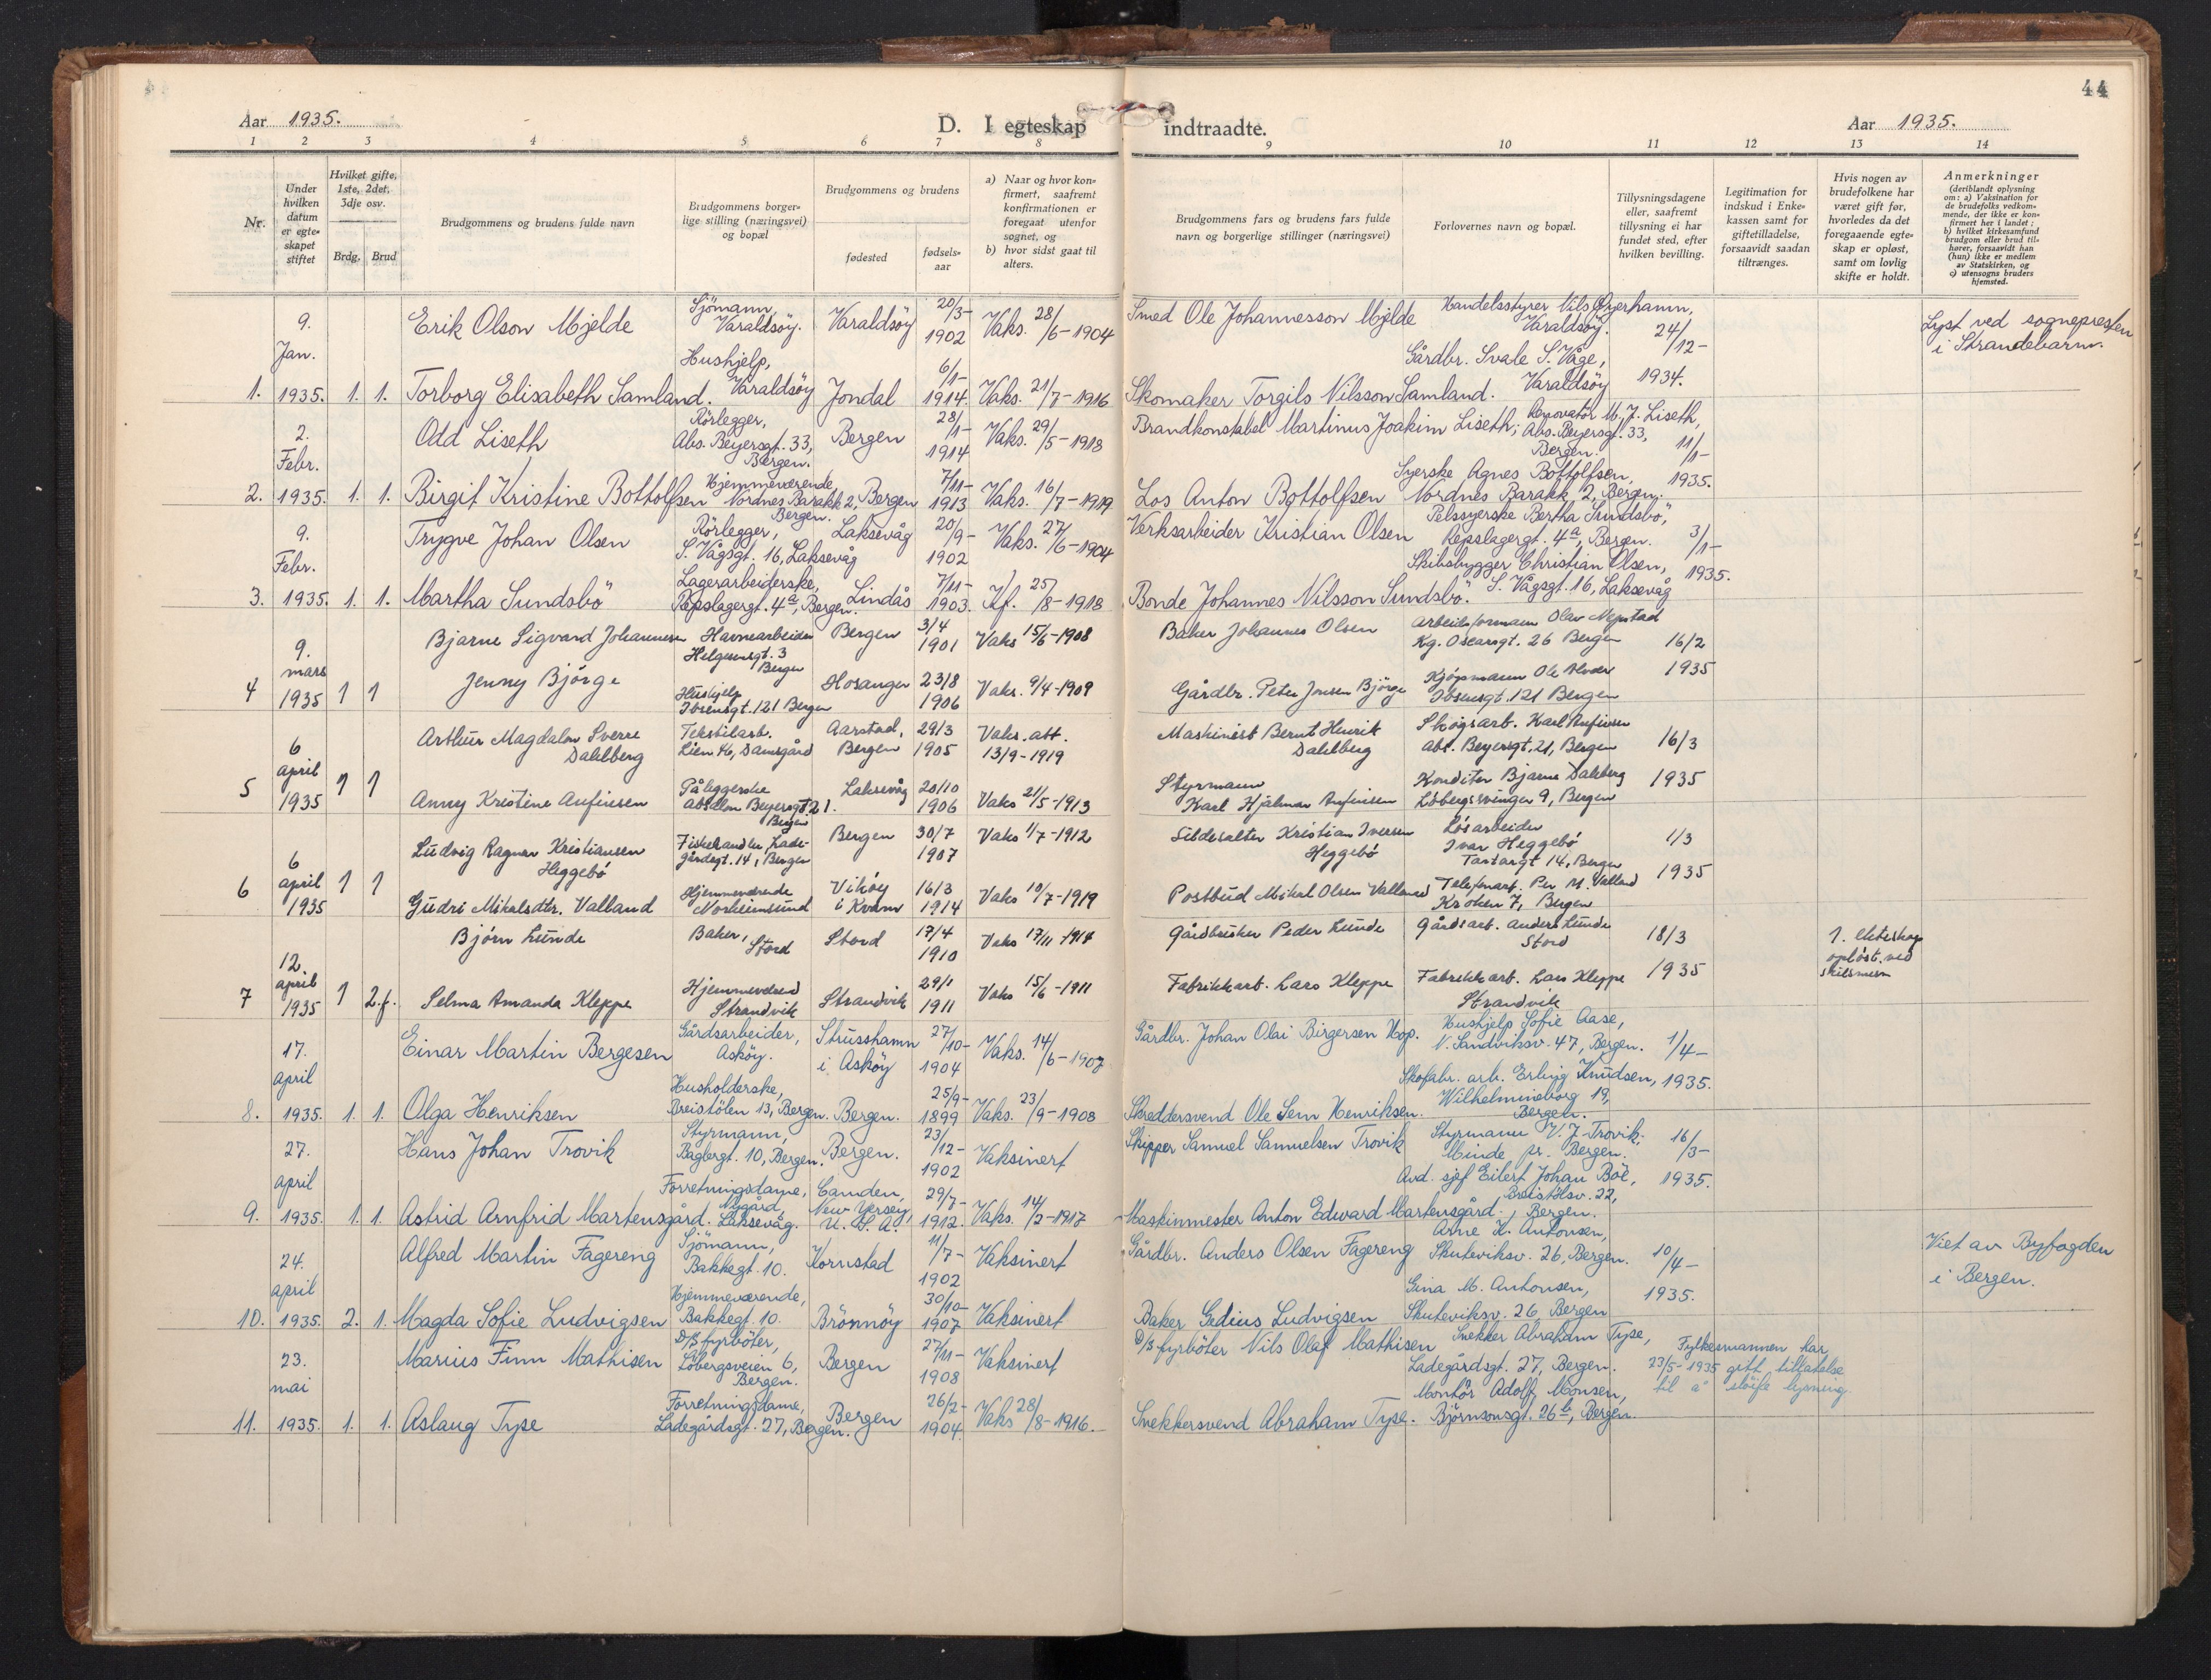 44
Aar 1935.
D. I egteskap indtraadte.
Aar 1935.
1 2 3 4 5 6 7 8 9 10 11 12 13 14
Nr.
Under hvilken datum er egteskapet stiftet
Hvilket gifte, 1ste, 2det, 3dje osv.
Brdg. Brud
Brudgommens og brudens fulde navn
Brudgommens borgerlige stilling (næringsvei) og bopæl
Brudgommens og brudens
fødested
fødselsaar
a) Naar og hvor konfirmert, saafremt konfirmationen er foregaat utenfor sognet, og
b) hvor sidst gaat til alters.
Brudgommens fars og brudens fars fulde navn og borgerlige stillinger (næringsvei)
Forlovernes navn og bopæl.
Tillysningsdagene eller, saafremt tillysning ei har fundet sted, efter hvilken bevilling.
Legitimation for indskud i Enkekassen samt for giftetilladelse, forsaavidt saadan tiltrænges.
Hvis nogen av brudefolkene har været gift før, hvorledes da det foregaaende egteskap er opløst, samt om lovlig skifte er holdt.
Anmerkninger
(deriblandt oplysning om: a) Vaksination for de brudefolks vedkommende, der ikke er konfirmert her i landet; b) hvilket kirkesamfund brudgom eller brud tilhører, forsaavidt han (hun) ikke er medlem av Statskirken, og c) utensogns bruders hjemsted.
1. 9. Jan. 1935. 1. 1.
Erik Olson Mjelde Sjömann, Varaldsöy. Varaldsöy 20/3-1902 Vaks. 28/6-1904 Smed Ole Johannesson Mjelde Handelsstyrer Nils Øyerhamn, Varaldsöy. 24/12-1934. Lyst ved sognepresten i Strandebarm.
Torborg Elisabeth Samland. Hushjelp, Varaldsöy Jondal 6/1-1914. Vaks. 21/7-1916 Skomaker Torgils Nilsson Samland. Gårdbr. Svale S. Våge, Varaldsöy
2. 2. Febr. 1935. 1. 1.
Odd Liseth Rörlegger, Abs. Beyersgt. 33, Bergen. Bergen 28/1-1914 Vaks. 29/5-1918 Brandkonstabel Martinus Joakim Liseth; Renovatör M. J. Liseth, Abs. Beyersgt. 33, Bergen. 11/1-1935.
Birgit Kristine Bottolfsen Hjemmeværende, Nordnes Barakk 2, Bergen. Bergen 7/11-1913 Vaks. 16/7-1919 Los Anton Bottolfsen Syerske Agnes Bottolfsen, Nordnes Barakk 2, Bergen.
3. 9. Febr. 1935. 1. 1.
Trygve Johan Olsen Rörlegger, S. Vågsgt. 16, Laksevåg Laksevåg 20/9-1902 Vaks. 27/6-1904 Verksarbeider Kristian Olsen Pelssyerske Bertha Sundsbö, Repslagergt. 4a, Bergen. 3/1-1935.
Martha Sundsbö Lagerarbeiderske, Repslagergt. 4a, Bergen. Lindås 7/11-1903. Kf. 25/8-1918 Bonde Johannes Nilsson Sundsbö. Skibsbygger Christian Olsen, S. Vågsgt. 16, Laksevåg
4 9. mars 1935 1 1
Bjarne Sigvard Johannesen Havnearbeider Helgesensgt. 3 Bergen Bergen 3/4 1901 Vaks 15/6-1908 Baker Johannes Olsen Arbeidsformann Olav Kg. Oscarsgt. 26 Bergen 16/2 1935
Jenny Bjørge Hushjelp Ibsensgt. 121 Bergen Hosanger 23/8 1906 Vaks. 9/4-1909 Gårdbr. Peter Jonsen Bjørge Kjøpmann Ole Alvær Ibsensgt. 121 Bergen
5 6 april 1935 1 1
Arthur Magdalon Sverre Dahlberg Tekstilarb. Lien 46, Damsgård Aarstad, Bergen 29/3 1905 Vaks. att. 13/9-1919 Maskinist Bernt Henrik Dahlberg Skogsarb. Karl Anfinsen Abs. Beyersgt. 21, Bergen 16/3 1935
Anny Kristine Anfinsen Påleggerske Absalon Beyersgt. 21. Bergen Laksevåg 20/10 1906 Vaks 21/5-1913 Styrmann Karl Hjalmar Anfinsen Konditor Bjarne Dahlberg Løbergsvingen 9, Bergen
6 6 april 1935 1 1
Ludvig Ragnar Kristiansen Heggebø Fiskehandler, Ladegårdsgt. 14, Bergen Bergen 30/7 1907 Vaks 1/7-1912 Sildesalter Kristian Iversen Heggebø Løsarbeider Ivar Heggebø Tartargt 14, Bergen 1/3 1935
Gudri Mikalsdtr. Valland Hjemmeværende Norheimsund Vikøy i Kvam 16/3 1914 Vaks 10/7-1919 Postbud Mikal Olsen Valland Telefonarb. Per M. Valland Kroken 7, Bergen
7 12. april 1935 1 2.f.
Bjørn Lunde Baker, Stord Stord 17/4 1910 Vaks 17/11-1914 Gårdbruker Peder Lunde Gårdsarb. Anders Lunde Stord 18/3 1935 1. ekteskap opløst ved skilsmisse
Selma Amanda Kleppe Strandvik Strandvik 29/1 1911 Vaks 15/6-1911 Fabrikkarb. Lars Kleppe Fabrikkarb. Lars Kleppe Strandvik
8. 17. april 1935. 1. 1.
Einar Martin Bergesen Gårdsarbeider, Asköy. Strusshamn i Asköy 27/10-1904 Vaks. 14/6-1907 Gårdbr. Johan Olai Birgersen Hop. Hushjelp Sofie Aase, N. Sandviksv. 47, Bergen. 1/4-1935.
Olga Henriksen Husholderske, Breistölen 13, Bergen. Bergen. 25/9-1899 Vaks. 23/9-1908 Skreddersvend Ole Sem Henriksen. Skofabr. arb. Erling Knudsen, Wilhelmineborg 19, Bergen.
9. 27. april 1935. 1. 1.
Hans Johan Trovik Styrmann, Baglergt. 10, Bergen. Bergen. 23/12-1902 Vaksinert Skipper Samuel Samuelsen Trovik Styrmann V. J. Trovik. Minde pr. Bergen. 16/3-1935.
Astrid Arnfrid Martensgård. Forretningsdame, Nygård, Laksevåg. Camden, New Yersey, U. S. A. 29/7-1912. Vaks. 14/2-1917 Maskinmester Anton Edward Martensgård. Avd. sjef Eilert Johan Böe, Breistölsv. 22, Bergen.
10. 24. april 1935. 2. 1.
Alfred Martin Fagereng Sjömann, Bakkegt. 10. Kornstad 11/7-1902 Vaksinert Gårdbr. Anders Olsen Fagereng Arne K. Antonsen, Skuteviksv. 26, Bergen. 10/4-1935. Viet av Byfogden i Bergen.
Magda Sofie Ludvigsen Hjemmeværende, Bakkegt. 10. Brönnöy 30/10-1907 Vaksinert Baker Gedius Ludvigsen Gina M. Antonsen, Skuteviksv. 26, Bergen
11. 23. mai 1935. 1. 1.
Marius Finn Mathisen D/S fyrböter, Löbergsveien 6, Bergen. Bergen 27/11-1908 Vaksinert D/S fyrböter Nils Olaf Mathisen Snekker Abraham Tyse, Ladegårdsgt. 27, Bergen. Fylkesmannen har 23/5-1935 gitt tillatelse til å slöife lysning.
Aslaug Tyse Forretningsdame, Ladegårdsgt. 27, Bergen. Bergen 26/2-1904. Vaks 28/8-1916. Snekkersvend Abraham Tyse. Montör Adolf Monsen, Björnsonsgt. 26b, Bergen.